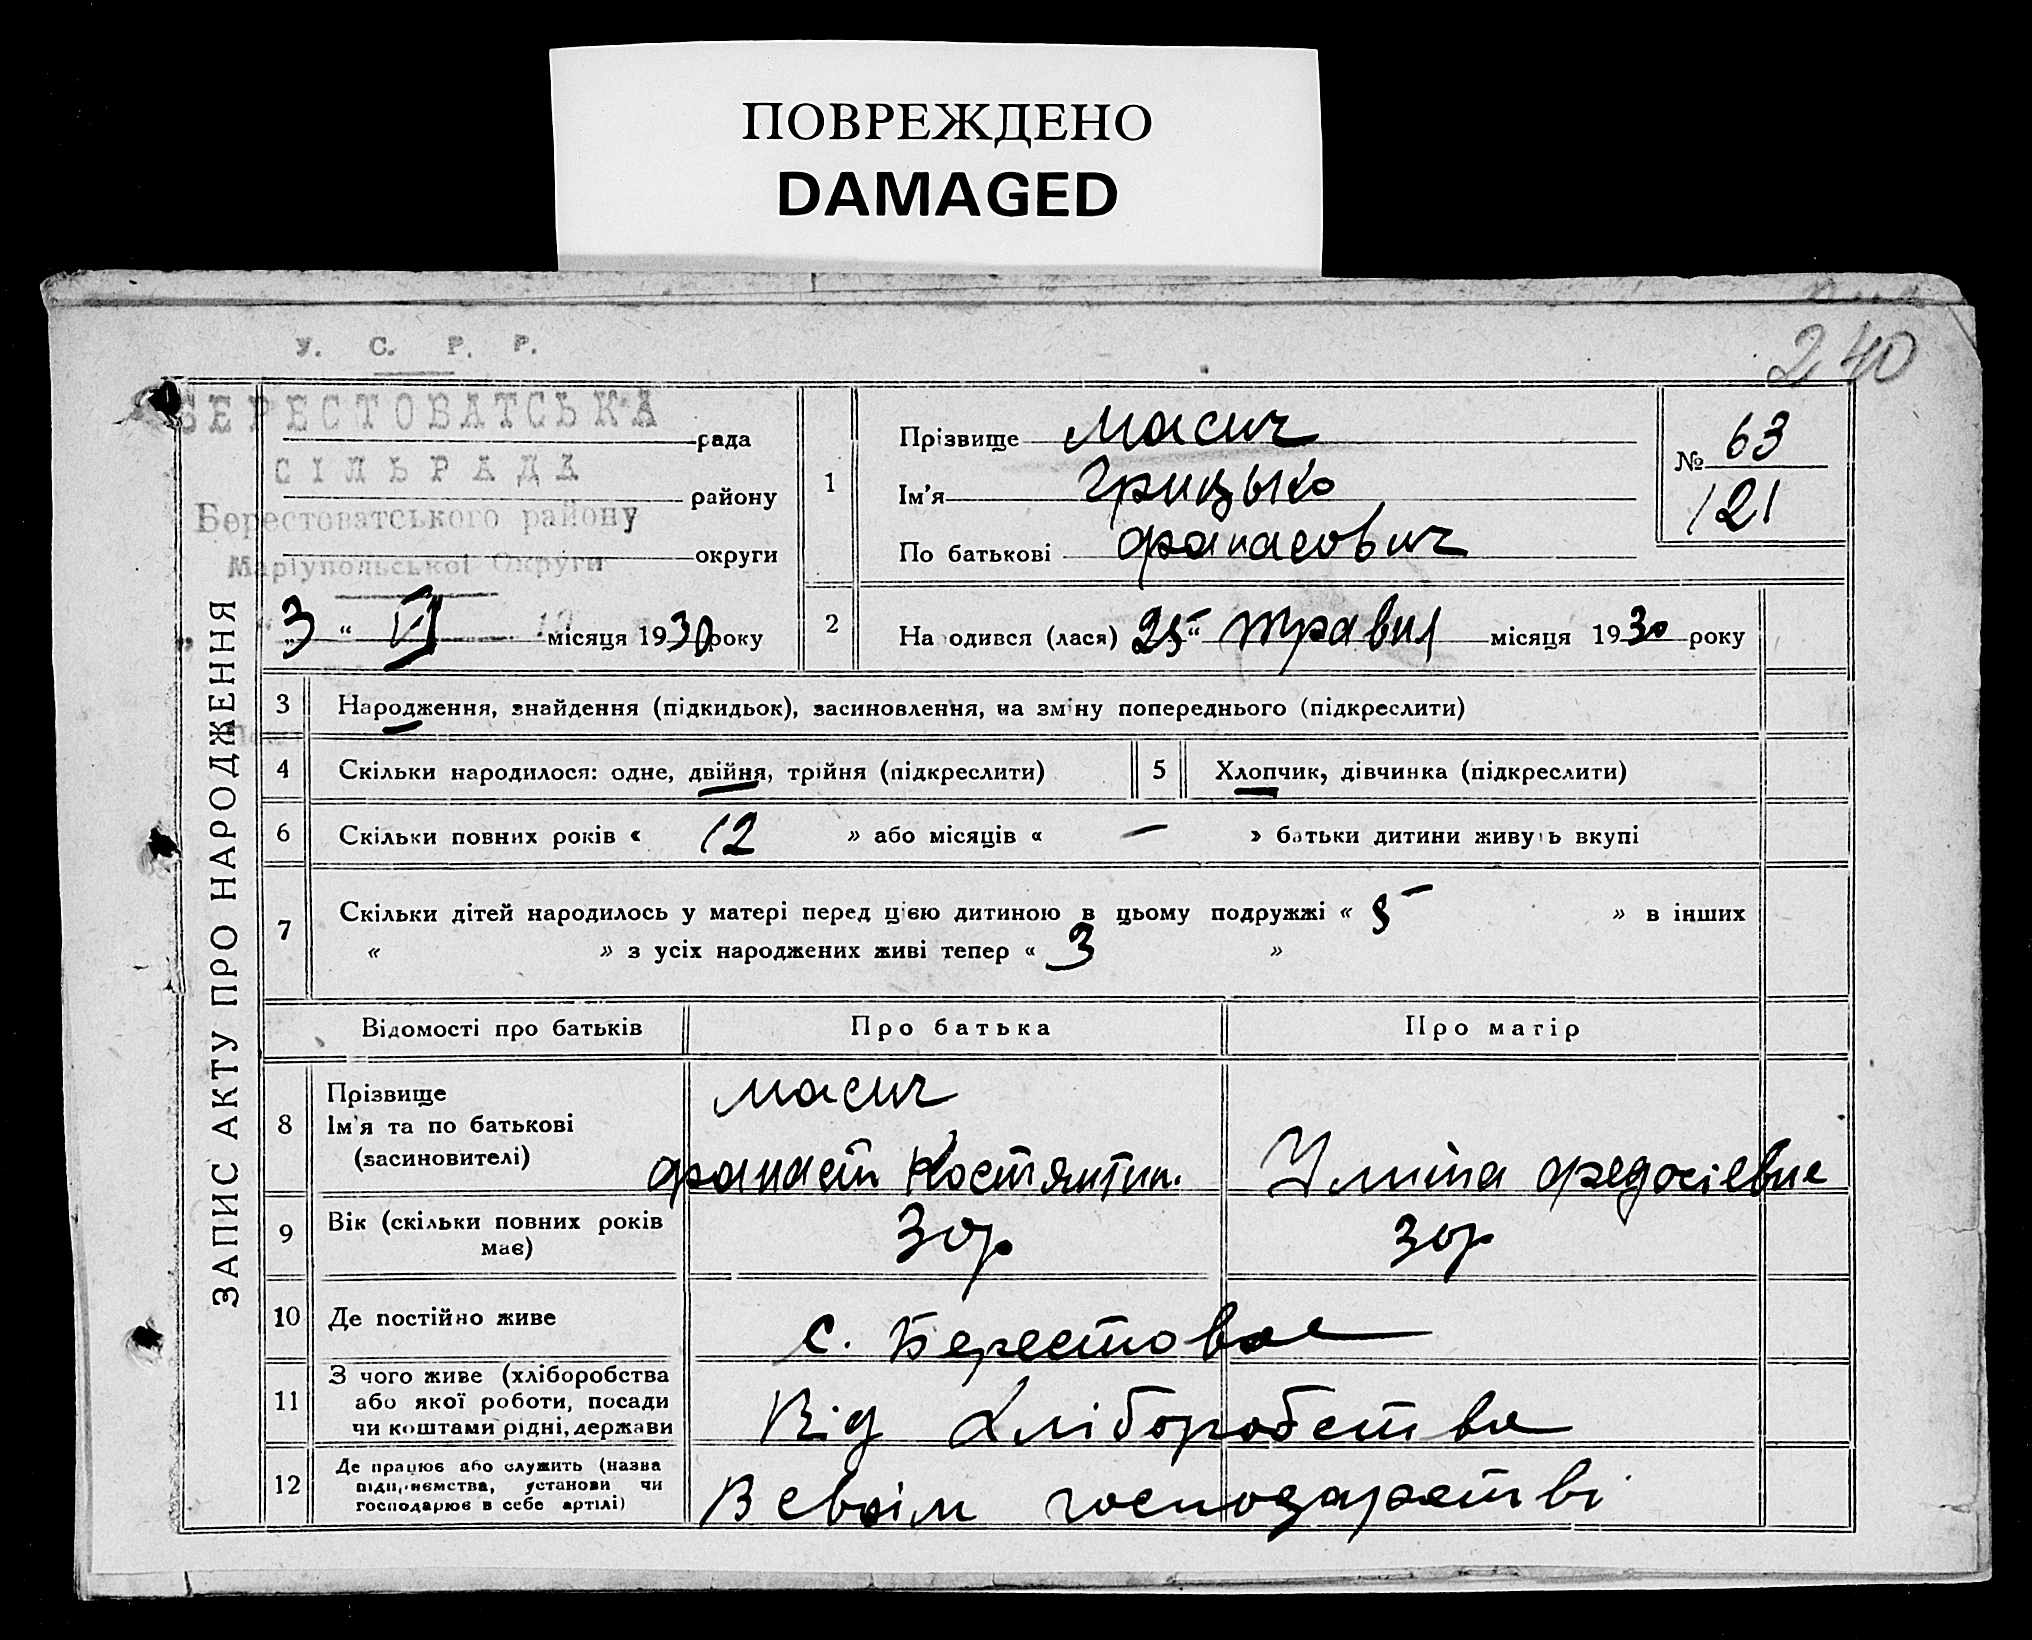 ПОВРЕЖДЕНО
DAMAGED
240
У. С. Р. Р.
БЕРЕСТОВАТСЬКА
рада
СІЛЬРАДА
району
Берестоватського району
округи
Маріупольської Округи
„3“ VI місяця 1930 року
ЗАПИС АКТУ ПРО НАРОДЖЕННЯ
1 Прізвище Масич
Ім'я Грицько
По батькові Фанасович
№ 63
121
2 На одився (лася) 25 “ травня місяця 1930 року
3 Народження, знайдення (підкидьок), засиновлення, на зміну попереднього (підкреслити)
4 Скільки народилося: одне, двійня, трійня (підкреслити) 5 Хлопчик, дівчинка (підкреслити)
6 Скільки повних років « 12 » або місяців « — » батьки дитини живуть вкупі
7 Скільки дітей народилось у матері перед цією дитиною в цьому подружжі « 5 » в інших
« » з усіх народжених живі тепер « 3 »
Відомості про батьків Про батька Про матір
8 Прізвище
Ім'я та по батькові
(засиновителі)
Масич
Фанаст Костянтин. Уліта Федосіевне
9 Вік (скільки повних років
має)
30р 30р
10 Де постійно живе с. Берестовое
11 З чого живе (хліборобства
або якої роботи, посади
чи коштами рідні, держави
Від хліборобства
12 Де працює або служить (назва
підприємства, установи чи
господарює в себе артілі)
В своім господарстві